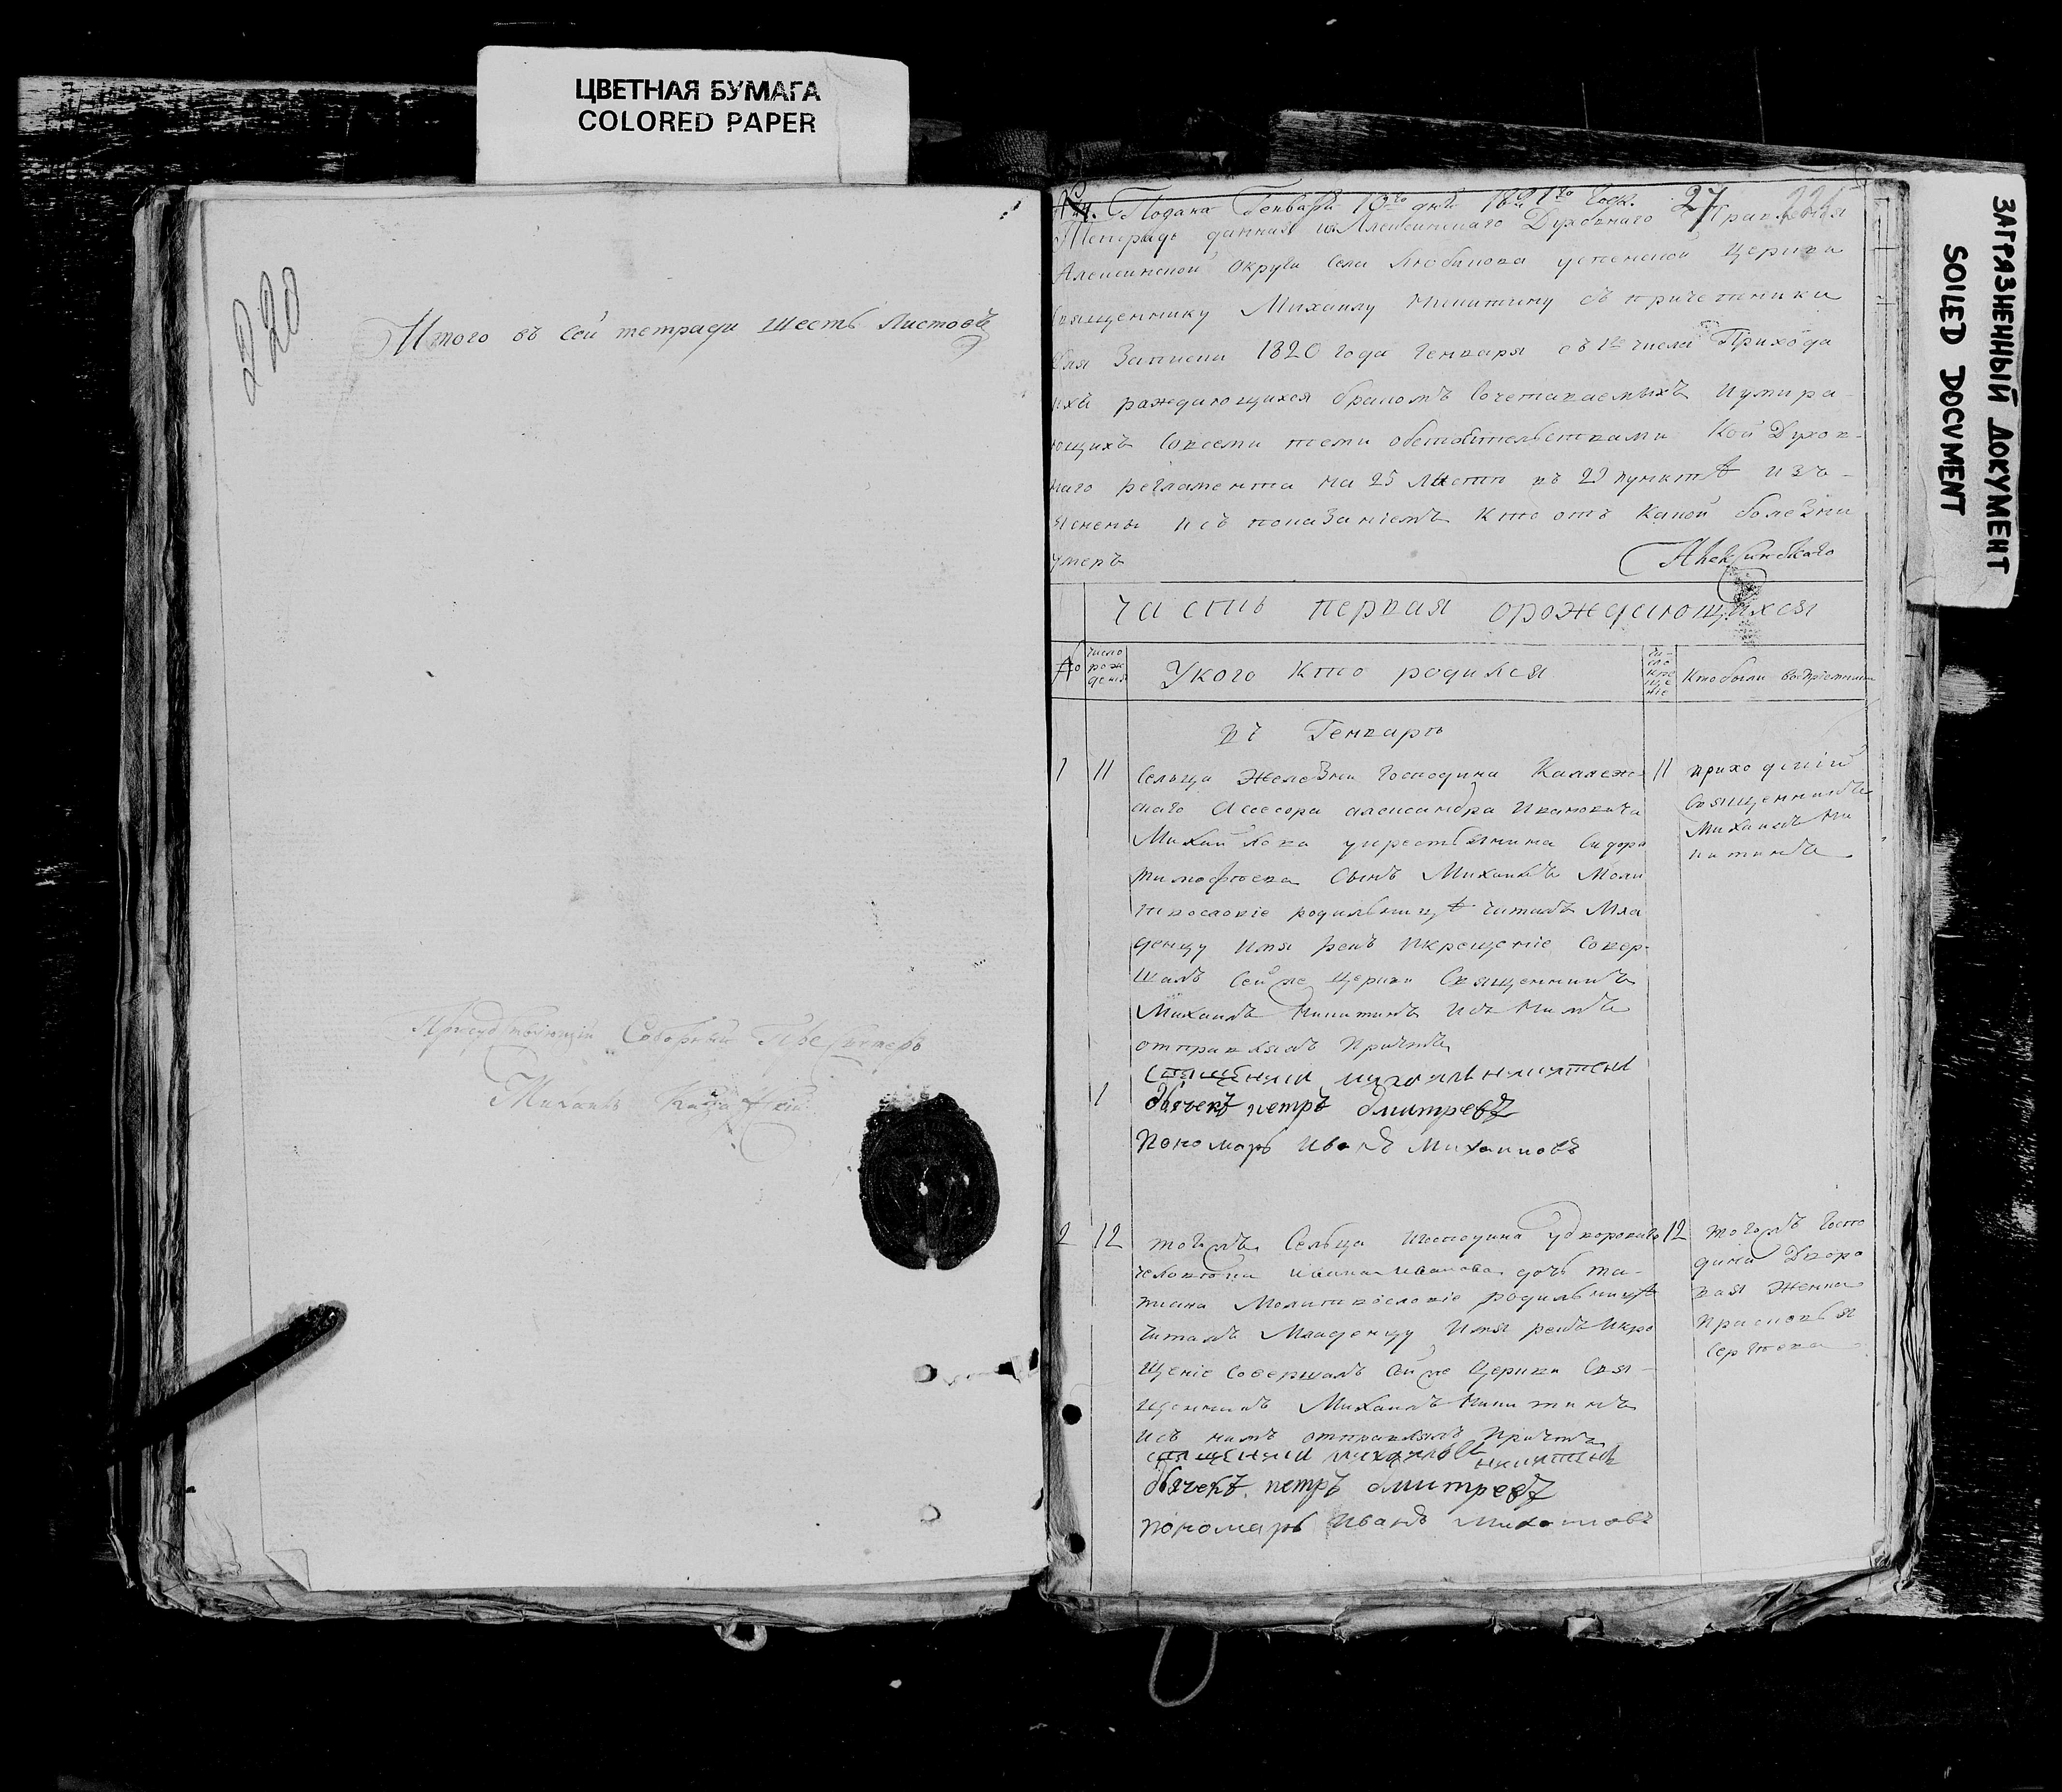 ЦВЕТНАЯ БУМАГА
COLORED PAPER
ЗАГРЯЗНЕННЫЙ ДОКУМЕНТ
SOILED DOCUMENT
220
Итого въ сей тетради шесть листовъ
Присудствующій Соборный Пресвитеръ
Михаилъ
Подана Генваря 10го дня 1821го года. 27
Тетрадь данная изъ Алексинскаго Духовнаго Правления
Алексинской округи села Любикова успенской Церкви
священнику Михаилу Никитину съ причетники
для Записки 1820 года Генваря съ 1го числа Прихода
ихъ раждающихся бракомъ Сочетаваемыхъ Иумира-
ющихъ Совсеми теми обстоятельствами Кои Духов-
наго регламента на 25 листе въ 29 пунктѣ изъ-
яснены исъ показаніемъ Кто отъ какой болезни
умеръ
Алексинскаго
часть первая орождающихся
№ число рож дения
Укого Кто родился
чи- сло кре ще ніе
Ктобыли восприемники
въ Генварѣ
1 11 Сельца Железни Господина Коллеж- 11
скаго Асесора александра Ивановича
Михайлова укрестьянина Сидора
тимофѣева Сынъ Михаилъ Моли
твословіе родильницѣ читалъ Мла
денцу Имя рекъ Икрещеніе Совер-
шалъ Сей же Церкви Священникъ
Михаилъ Никитинъ Исъ Нимъ
отправлялъ Причтъ
священникъ михаилъ никитинъ
1 дьячекъ петръ дмитревъ
Пономарь Иванъ Михаиловъ
приходскій
Священникъ
Михаилъ Ни
китинъ
2 12 тогожъ Сельца Игосподина удворового 12
человѣка ивана иванова дочь та-
тиана Молитвословіе родильницѣ
Читалъ Младенцу Имя рекъ Икре
щеніе Совершалъ Сей же Церкви Свя-
щенникъ Михаилъ Никитинъ
исъ нимъ отправлялъ Причтъ
священникъ михаилъ никитинъ
дьячекъ петръ дмитревъ
пономарь Иванъ Михаиловъ
тогожъ Госпо
дина Дворо
вая Женка
Прасковья
Сергѣева